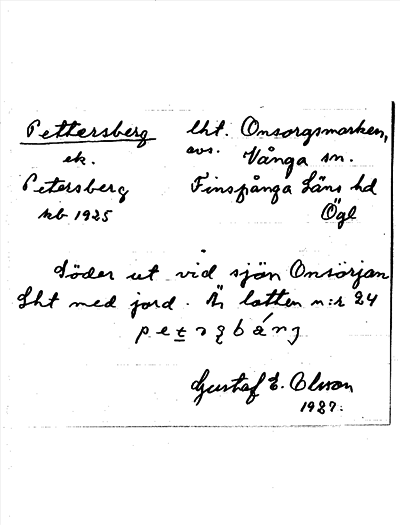 Pettersberg lht. Onsorgsmarken,
ek. avs. Vånga sn.
Petersberg Finspånga Läns hd
kb 1925 Ögl
Söder ut vid sjön Onsörjan
Lht med jord. Är lotten n:r 24
Gustaf E. Olsson
1927.